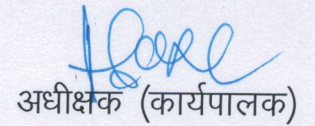 अधीक्षक (कार्यपालक)